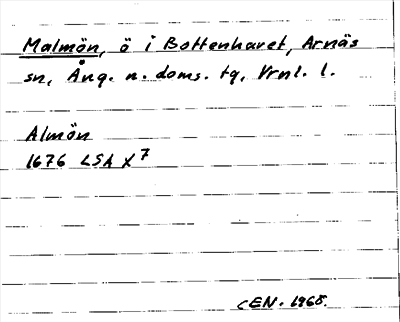 Malmön, ö i Bottenhavet, Arnäs
sn, Ång. n. doms. tg, Vrnl. l.
Almön
1676 LSA X7
CEN. 1968.